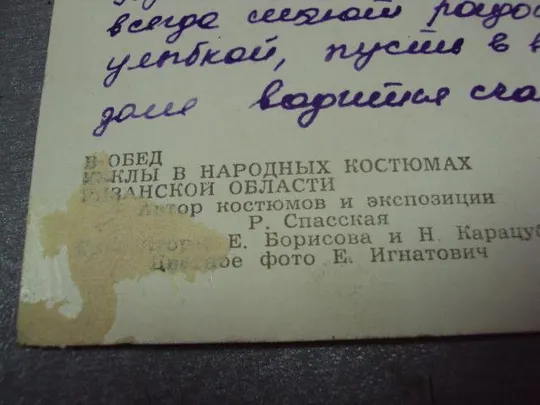 всегда милой радос
улыбкой, пусть в в
доме водится сча
В ОБЕД
КУКЛЫ В НАРОДНЫХ КОСТЮМАХ
РЯЗАНСКОЙ ОБЛАСТИ
Автор костюмов и экспозиции
Р. Спасская
Е. Борисова и Н. Карацуб
Цветное фото Е. Игнатович